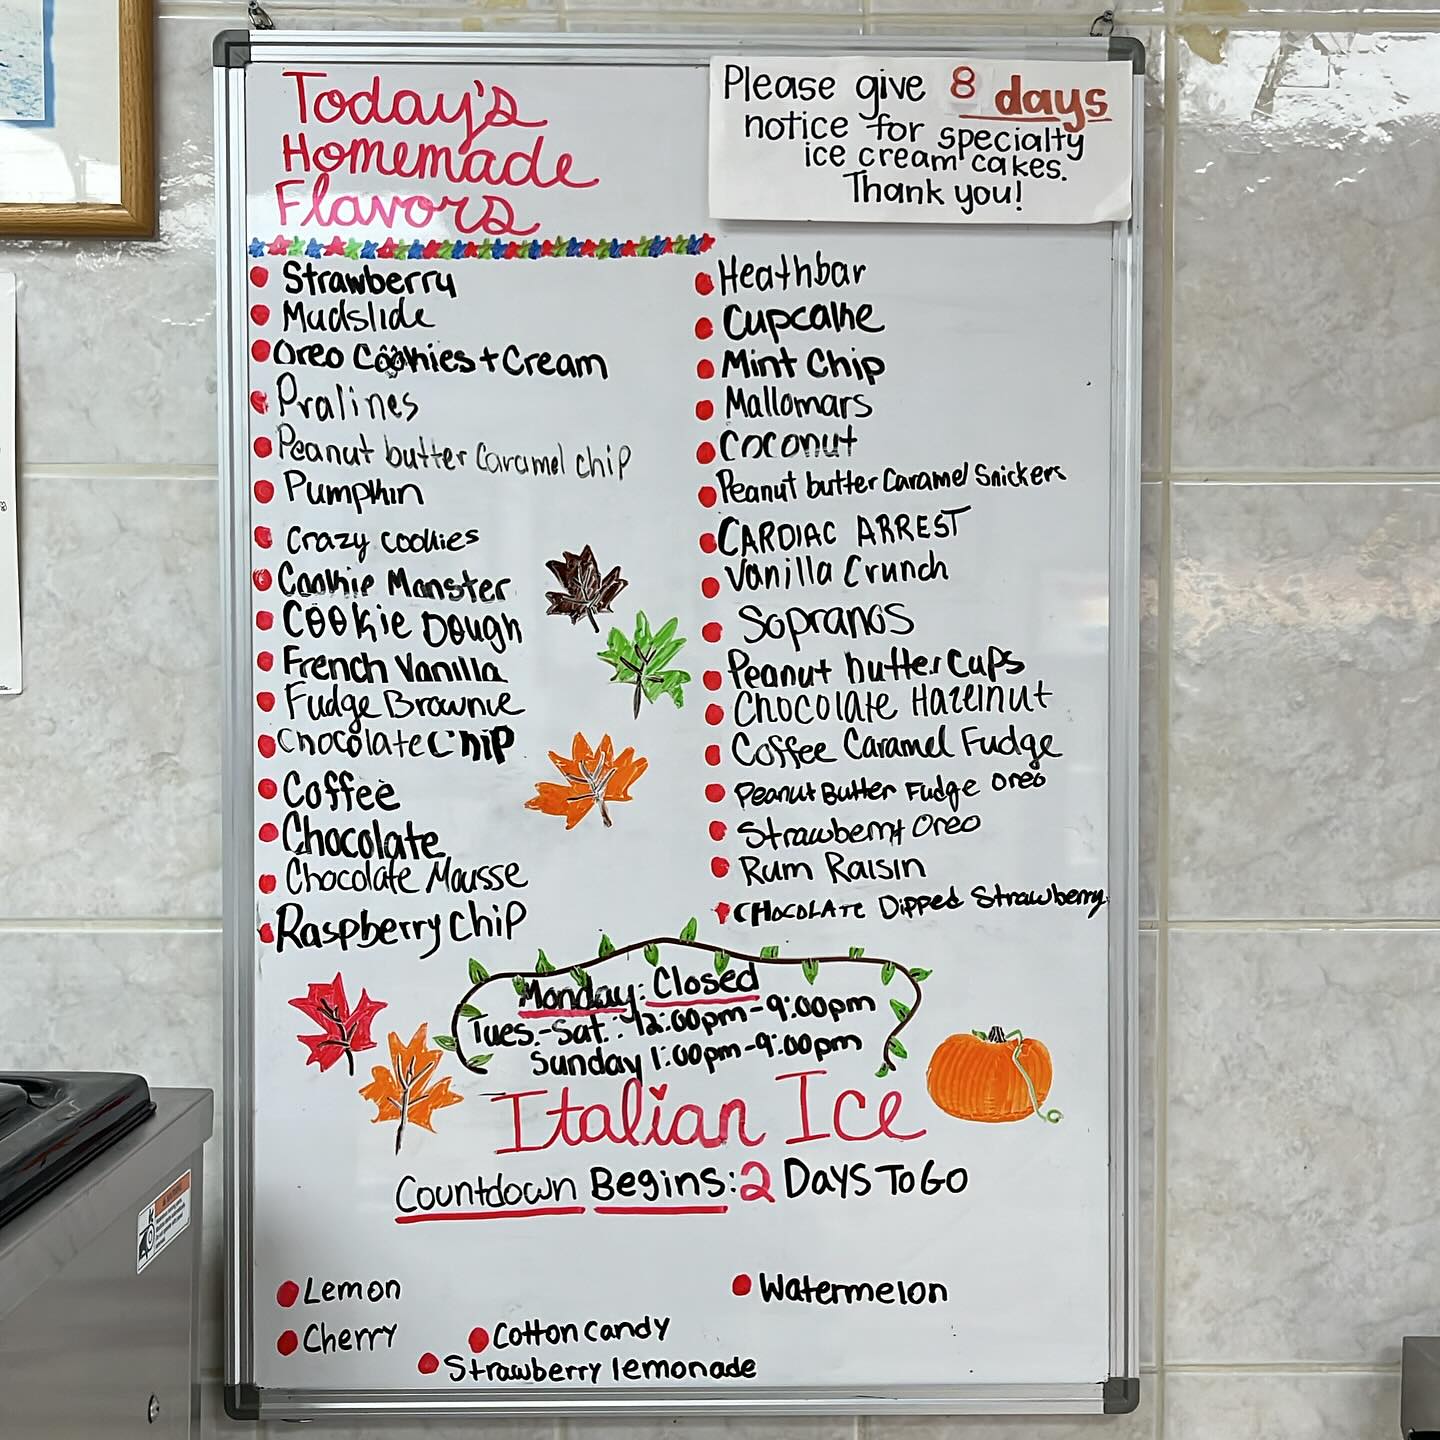 Today's
Homemade
Flavors
Please give 8 days
notice for specialty
ice cream cakes.
Thank you!
Strawberry
Mudslide
Oreo Cookies + Cream
Pralines
Peanut butter Caramel chip
Pumpkin
Crazy cookies
Cookie Monster
Cookie Dough
French Vanilla
Fudge Brownie
Chocolate Chip
Coffee
Chocolate
Chocolate Mousse
Raspberry chip
Heathbar
Cupcake
Mint Chip
Mallomars
Coconut
Peanut butter Caramel Snickers
CARDIAC ARREST
Vanilla Crunch
Sopranos
Peanut butter cups
Chocolate Hazelnut
Coffee Caramel Fudge
Peanut Butter Fudge Oreo
Strawberry Oreo
Rum Raisin
CHOCOLATE Dipped Strawberry
Monday: Closed
Tues.-Sat.: 12:00pm-9:00pm
Sunday 1:00pm-9:00pm
Italian Ice
Countdown Begins: 2 DAYS TO GO
Lemon
Watermelon
Cherry
Cotton candy
Strawberry lemonade